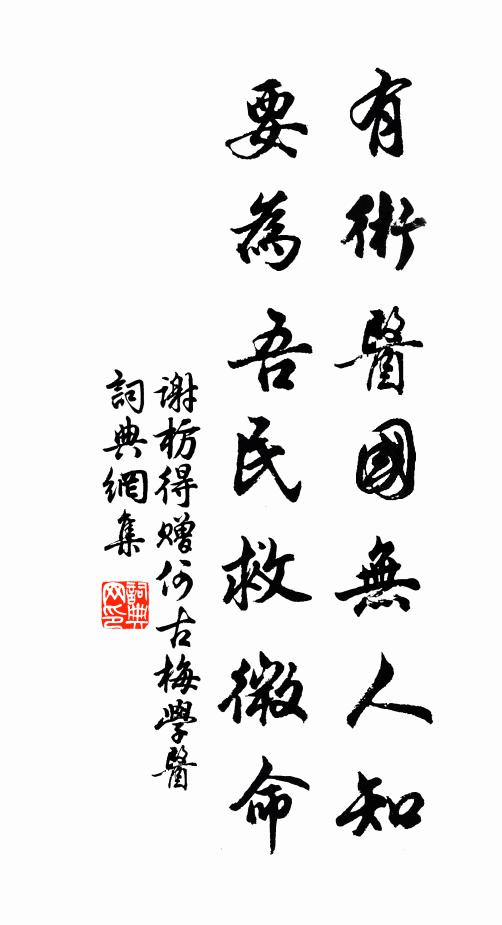 有術醫國無人知
要為吾民救微命
謝枋得贈何古梅學醫
詞典網集
詞典網印